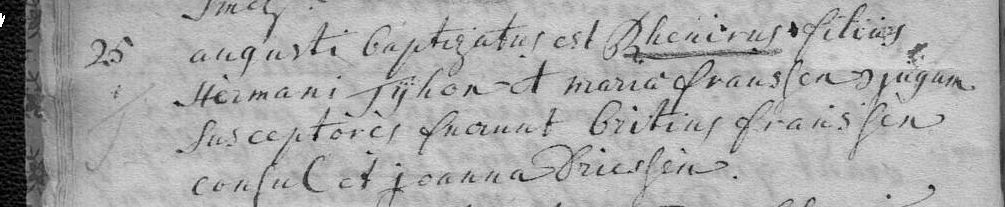 Smetz.
25 augusti baptizatus est Rhenirus filius
Hermani Tÿhon et maria franssen conjugum
Susceptores fuerunt britius franssen
consul et joanna Driessen.